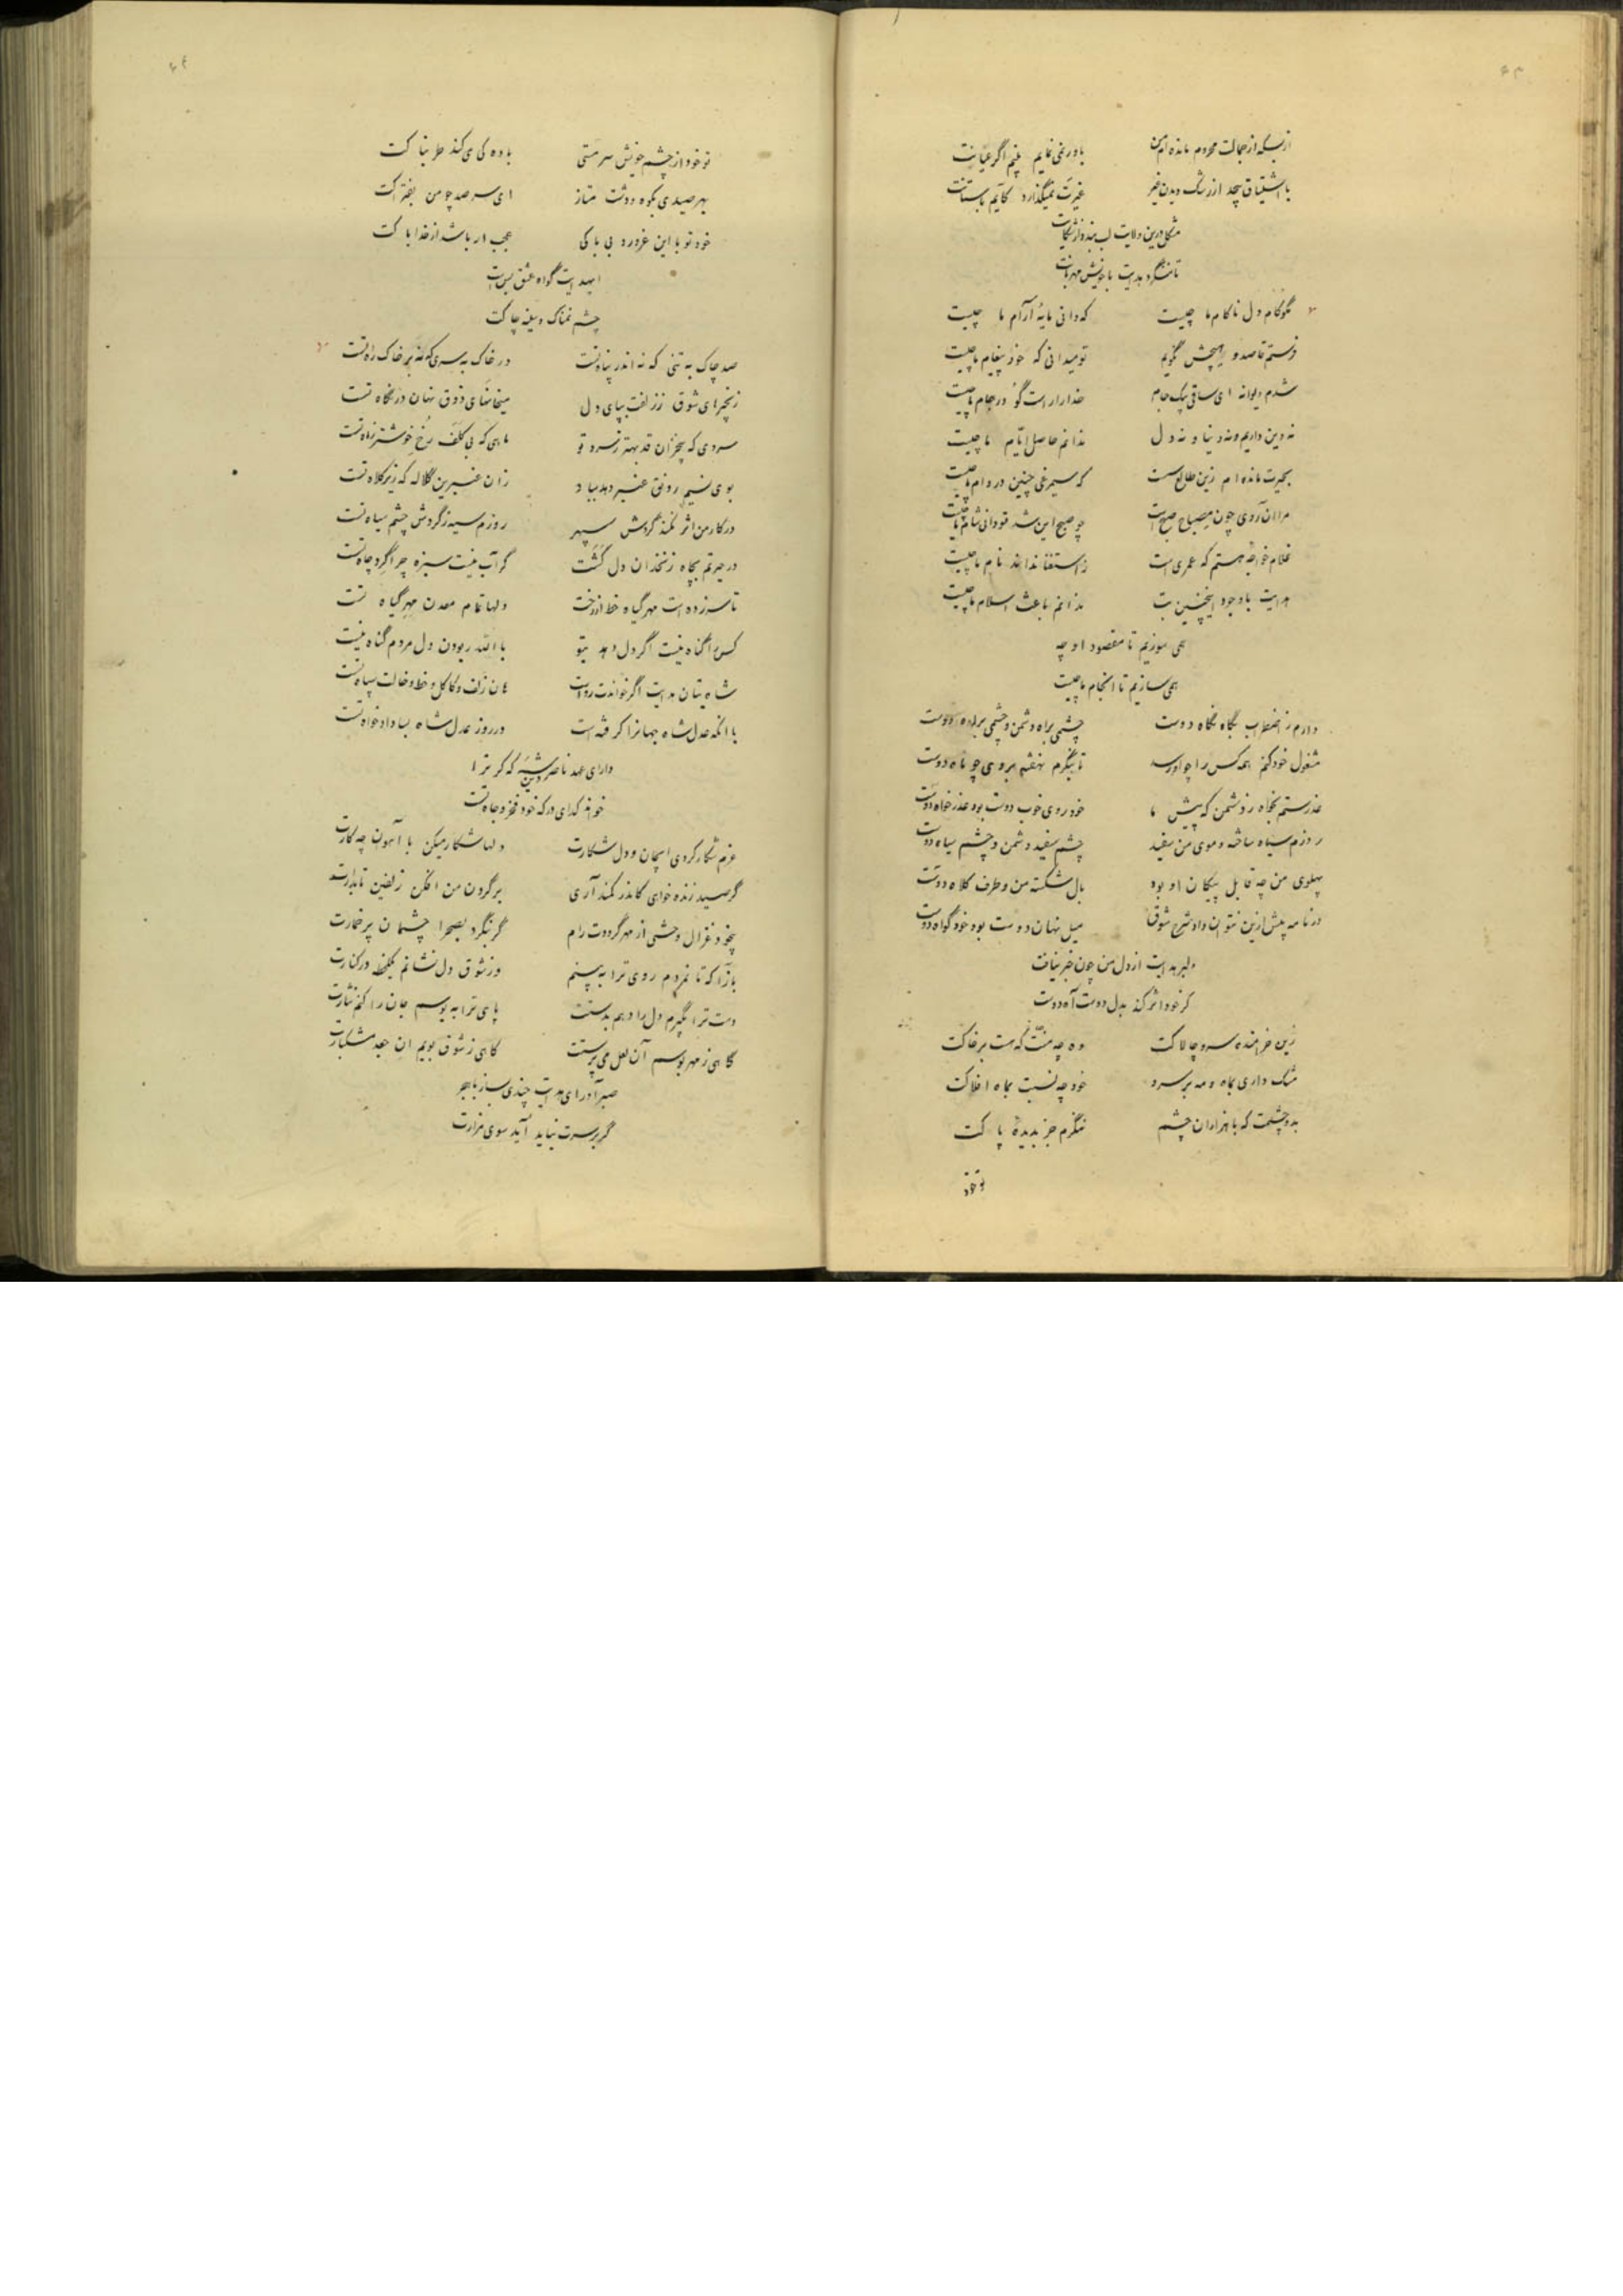 ۶۳
از بسکه از جمالت محروم مانده‌ام من
باور نمی‌نمایم بینم اگر عیانت
با اشتیاق بیحد از رشک دیدن غیر
غیرت نمیگذارد کآیم بآستانت
مشکل درین ولایت لب بندد از شکایت
تا ننگرد هدایت با خویش مهربانت
مگو کام دل ناکام ما چیست
که دانی مایهٔ آرام ما چیست
فرستم قاصد و هیچش نگویم
تو میدانی که خود پیغام ما چیست
شدم دیوانه ای ساقی بیک جام
خدا را راست گو در جام ما چیست
نه دین داریم و نه دنیا و نه دل
ندانم حاصل ایام ما چیست
بحیرت مانده‌ام زین طالع پست
که سیمرغی چنین در دام ما چیست
مر آن روی چون مصباح صبح است
چو صبح این شد تو دانی شام ما چیست
غلام خواجه هستم که عمری است
ز استغنا نداند نام ما چیست
هدایت باوجود اینچنین بت
ندانم باعث اسلام ما چیست
همی سوزیم تا مقصود او چه
همی سازیم تا انجام ما چیست
دارم ز اضطراب نگاه نگاه دوست
چشمی براه دشمن و چشمی براه دوست
مشغول خود کنم همه کس را چو او رسد
تا بنگرم نهفته بروی چو ماه دوست
عذر ستم بخواه ز دشمن که پیش ما
خود روی خوب دوست بود عذرخواه دوست
روزم سیاه ساخته و موی من سفید
چشم سفید دشمن و چشم سیاه دوست
پهلوی من چه قابل پیکان او بود
بال شکسته من و طرف کلاه دوست
در نامه پیش ازین نتوان داد شرح شوق
میل نهان دوست بود خود گواه دوست
دلبر هدایت از دل من چون خبر نیافت
کز خود اثر کند بدل دوست آه دوست
زین خرامنده سرو چالاکت
وه چه منت که هست بر خاکت
مشک داری بماه و مه بر سرو
خود چه نسبت بماه افلاکت
بدو چشمت که با هزاران چشم
ننگرم جز بدیدهٔ پاکت
تو خود
۶۴
تو خود از چشم خویش سرمستی
باده کی می‌کند طربناکت
بهر صیدی بکوه و دشت متاز
ای سر صد چو من بفتراکت
خود تو با این غرور و بی‌باکی
عجب ار باشد از خدا باکت
ای هدایت گواه عشق بس است
چشم نمناک و سینه چاکت
صد چاک به تنی که نه اندر پناه تست
در خاک به سری که نه بر خاک راه تست
زنجیرهای شوق ز زلفت بپای دل
میخانهای ذوق نهان در نگاه تست
سروی که بی‌خزان قد بهتر ز سرو تو
ماهی که بی‌کلف رخ خوشتر ز ماه تست
بوی نسیم رونق عنبر دهد بباد
زان عنبرین کلاله که زیر کلاه تست
در کار من اثر نکند گردش سپهر
روزم سیه ز گردش چشم سیاه تست
در حیرتم بچاه زنخدان دل گشت
گر آب نیست سبزه چرا گرد چاه تست
تا سر زده است مهر گیاه خط از رخت
دلها تمام معدن مهر گیاه تست
کس را گناه نیست اگر دل دهد بتو
بالله ربودن دل مردم گناه نیست
شاه بتان هدایت اگر خواندت رواست
کان زلف و کاکل و خط و خالت سپاه تست
با آنکه عدل شاه جهانرا گرفته است
در روز عدل شاه بسا دادخواه تست
دارای عهد ناصر دین شه که گر ترا
خواند گدای درگه خود فخر و جاه تست
عزم شکار کردی ایجان و دل شکارت
دلها شکار میکن با آهوان چه کارت
گر صید زنده خواهی کاندر کمند آری
بر گردن من افکن زلفین تابدارت
بیخود غزال وحشی از مهر گرددت رام
گر بنگرد بصحرا چشمان پرخمارت
بازآ که تا نمردم روی ترا به بینم
وز شوق دل نشانم یکلحظه در کنارت
دست ترا بگیرم دل را دهم بدستت
پای ترا به بوسم جان را کنم نثارت
گاهی ز مهر بوسم آن لعل می‌پرستت
گاهی ز شوق بویم آن جعد مشکبارت
صبر آور ای هدایت چندی بساز با هجر
گر بر سرت نیاید آید سوی مزارت